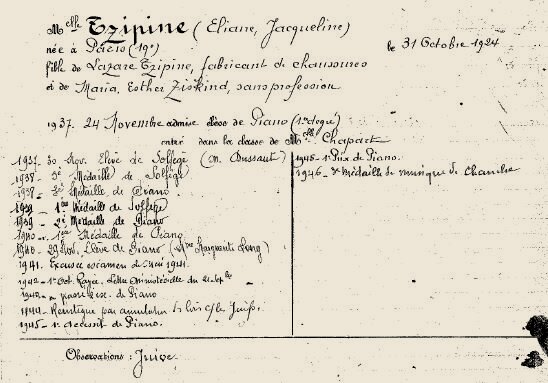 Melle Tzipine (Eliane, Jacqueline)
née à Paris (19e) le 31 Octobre 1924
fille de Lazare Tzipine, fabricant de chaussures
et de Maria, Esther Ziskind, sans profession
1937. 24 Novembre admise élève de Piano (1er degré)
entre dans la classe de Melle Chapart
1937. 30 Nov. Elève de Solfège (M. Dussaut)
1938 - 3e Médaille de Solfège
1938 - 3e Médaille de Piano
1939 - 1ère Médaille de Solfège
1939 - 2e Médaille de Piano
1940 - 1ère Médaille de Piano
1940 - 29 Nov. Elève de Piano (Mme Marguerite Long)
1941. Excusée examen de Mai 1941.
1942 - 1er Oct. Rayée. Lettre Ministérielle du
1942 - a passé de Piano
1944. Réintégrée par annulation des lois c/ les Juifs.
1945 - 1er accessit de Piano.
1945 - 1er Prix de Piano.
1946 - Médaille de musique de Chambre
Observations : Juive.